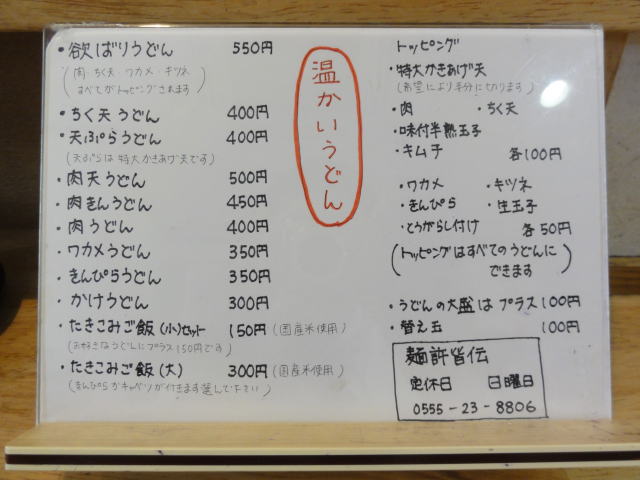 温かいうどん
・欲ばりうどん 550円
(肉・ちく天・ワカメ・キツネ
すべてがトッピングされます)
・ちく天うどん 400円
・天ぷらうどん 400円
(天ぷらは特大かきあげ天です)
・肉天うどん 500円
・肉きんうどん 450円
・肉うどん 400円
・ワカメうどん 350円
・きんぴらうどん 350円
・かけうどん 300円
・たきこみご飯(小)セット 150円(国産米使用)
(お好きなうどんにプラス150円です)
・たきこみご飯(大) 300円(国産米使用)
(きんぴらかキャベツが付きます選んで下さい)
トッピング
・特大かきあげ天
(希望により半分に切ります)
・肉 ・ちく天
・味付半熟玉子
・キムチ 各100円
・ワカメ ・キツネ
・きんぴら ・生玉子
・とうがらし付け 各50円
(トッピングはすべてのうどんに
できます)
・うどんの大盛はプラス100円
・替え玉 100円
麺許皆伝
定休日 日曜日
0555-23-8806